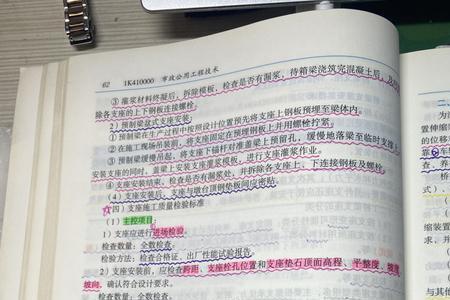 62 1K410000 市政公用工程技术
③ 灌浆材料终凝后，拆除模板，检查是否有漏浆，待箱梁浇筑完混凝土后，及
除各支座的上下钢板连接螺栓。
2）预制梁盆式支座安装
① 预制梁在生产过程中按照设计位置预先将支座上钢板预埋至梁体内。
② 在施工现场吊装前，将支座固定在预埋钢板上并用螺栓拧紧。
③ 预制梁缓慢吊起，将支座下锚杆对准盖梁上预留孔，缓慢地落梁至临时支撑上
安装支座的同时，盖梁上安装支座灌浆模板，进行支座灌浆作业。
④ 支座安装结束，检查是否有漏浆处，并拆除各支座上、下连接钢板及螺栓。
（4）支座安装后，支座与墩台顶钢垫板间应密贴。
（四）支座施工质量检验标准
（1）主控项目：
1）支座应进行进场检验。
检查数量：全数检查。
检验方法：检查合格证、出厂性能试验报告。
2）支座安装前，应检查跨距、支座栓孔位置和支座垫石顶面高程、平整度、坡度
坡向，确认符合设计要求。
检查数量：全数检查。
二、
为
置伸缩
的位移
靠
查、养
桥
式）、
缩装置
求，并
与其他